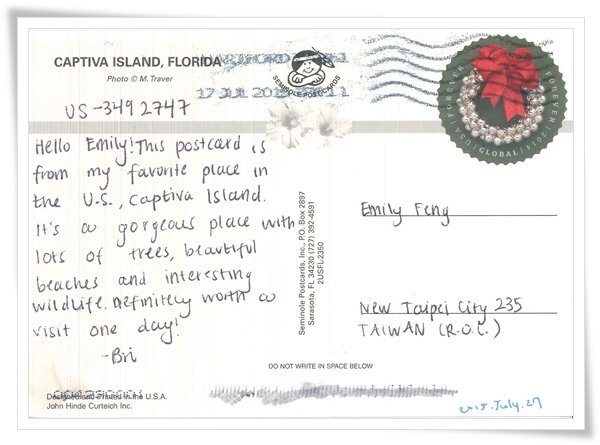 CAPTIVA ISLAND, FLORIDA
Photo © M. Traver
17 JUL
SEMINOLE POSTCARDS
USA FOREVER
FOREVER 2014
GLOBAL
US-3492747
Hello Emily! This postcard is
from my favorite place in
the U.S., Captiva Island.
It's a gorgeous place with
lots of trees, beautiful
beaches and interesting
wildlife. Definitely worth a
visit one day!
-Bri
Seminole Postcards, Inc., P.O. Box 2897
Sarasota, FL 34230 (727) 392-4591
2USFL-2350
Emily Feng
New Taipei City 235
TAIWAN (R.O.C.)
DO NOT WRITE IN SPACE BELOW
Designed and Printed in the U.S.A.
John Hinde Curteich Inc.
2015.July.27